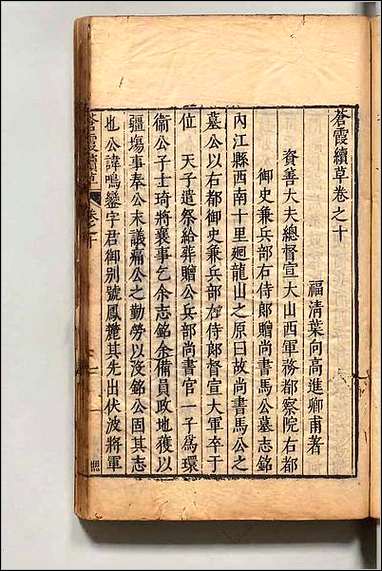 蒼霞續草卷之十
福清葉向高進卿甫著
資善大夫總督宣大山西軍務都察院右都
御史兼兵部右侍郎贈尚書馬公墓志銘
內江縣西南十里廻龍山之原曰故尚書馬公之
墓公以右都御史兼兵部左侍郎督宣大軍卒于
位　天子遣祭給葬贈公兵部尚書官一子爲環
衞公子士琦將襄事乞余志銘余備員政地獲以
疆場事奉公末議痛公之勤勞以沒銘公固其志
也公諱鳴鑾字君御别號鳳麓其先出伏波將軍
蒼霞續草
卷之十
一